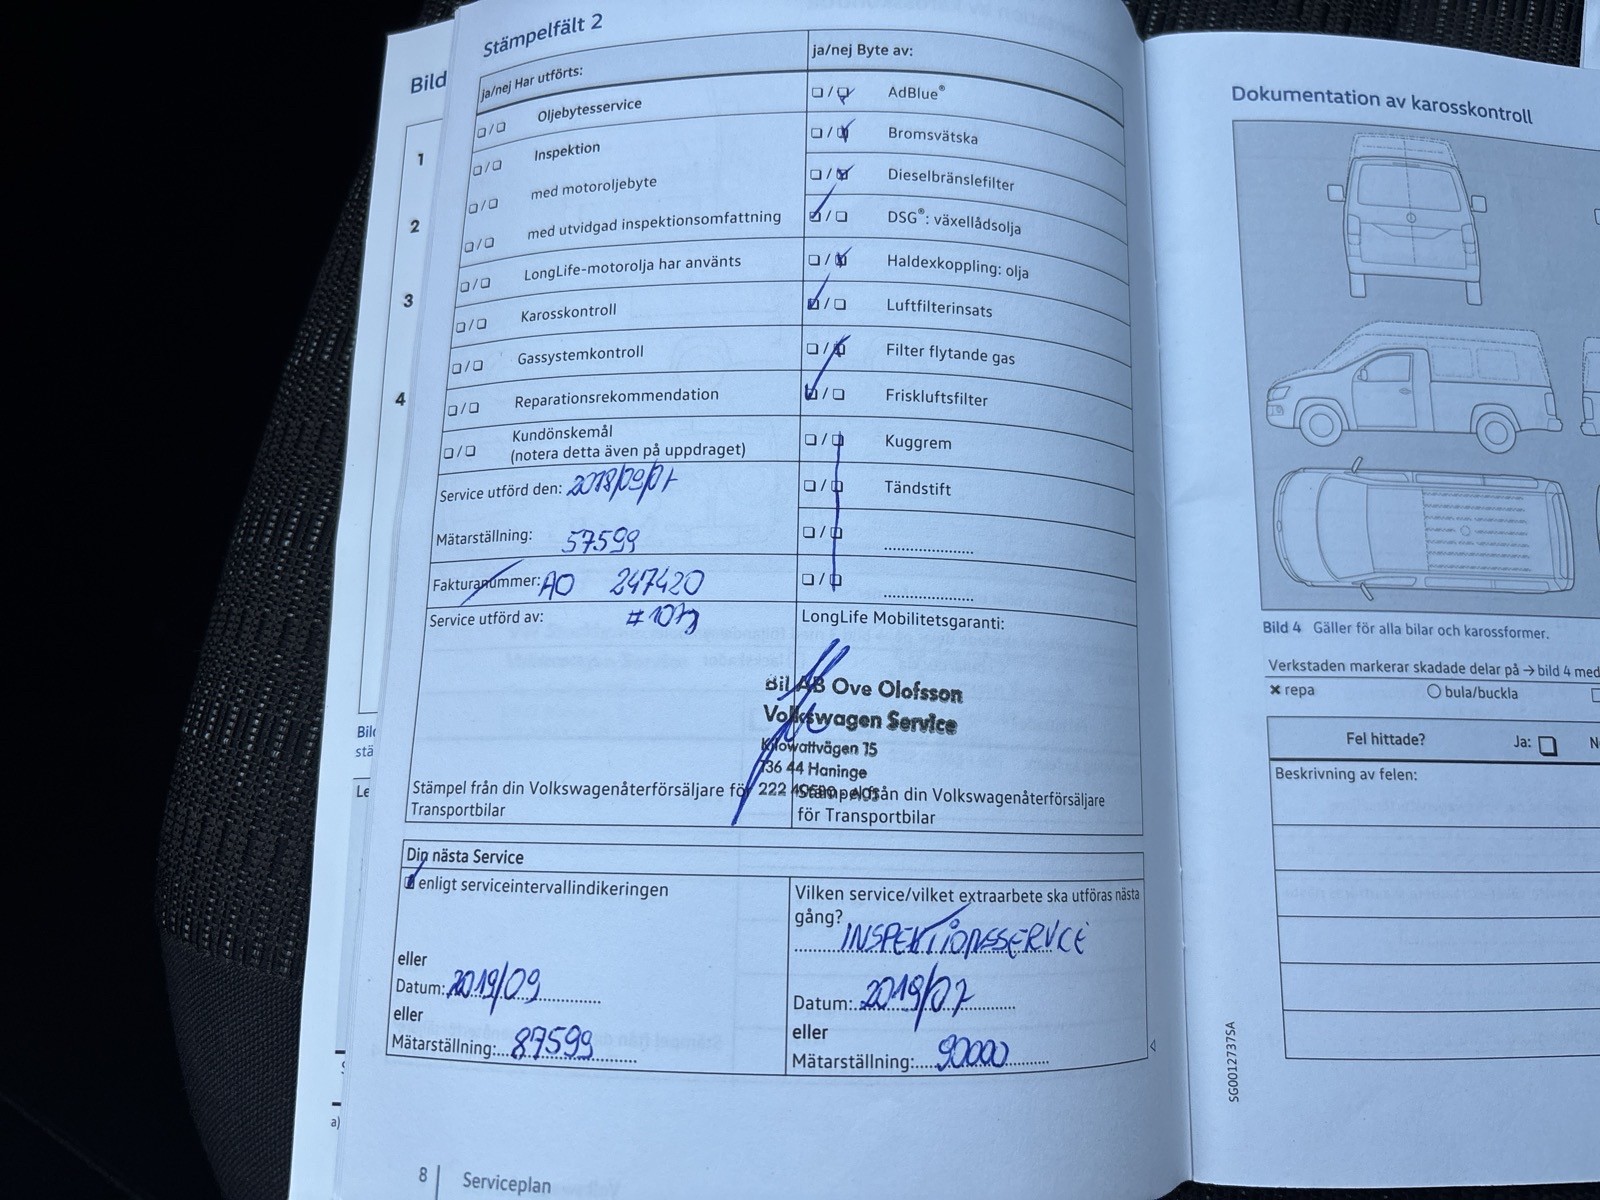 Stämpelfält 2
ja/nej Har utförts:
❏/❏ Oljebytesservice
❏/❏ Inspektion
❏/❏ med motoroljebyte
❏/❏ med utvidgad inspektionsomfattning
❏/❏ LongLife-motorolja har använts
❏/❏ Karosskontroll
❏/❏ Gassystemkontroll
❏/❏ Reparationsrekommendation
❏/❏ Kundönskemål
(notera detta även på uppdraget)
Service utförd den: 2018/09/01
Mätarställning: 57599
Fakturanummer: AO 247420
Service utförd av: #107
Stämpel från din Volkswagenåterförsäljare för
Transportbilar
ja/nej Byte av:
❏/❏ AdBlue®
❏/❏ Bromsvätska
❏/❏ Dieselbränslefilter
❏/❏ DSG®: växellådsolja
❏/❏ Haldexkoppling: olja
❏/❏ Luftfilterinsats
❏/❏ Filter flytande gas
❏/❏ Friskluftsfilter
❏/❏ Kuggrem
❏/❏ Tändstift
❏/❏ ......................
❏/❏ ......................
LongLife Mobilitetsgaranti:
Bil AB Ove Olofsson
Volkswagen Service
Kilowattvägen 15
136 44 Haninge
222
Stämpel från din Volkswagenåterförsäljare
för Transportbilar
Din nästa Service
enligt serviceintervallindikeringen
eller
Datum: 2019/09
eller
Mätarställning: 87599
Vilken service/vilket extraarbete ska utföras nästa
gång?
INSPEKTIONSSERVCE
Datum: 2019/07
eller
Mätarställning: 90000
8 | Serviceplan
Bild
1
2
3
4
stä
Le
a)
Dokumentation av karosskontroll
Bild 4 Gäller för alla bilar och karossformer.
Verkstaden markerar skadade delar på → bild 4 med
✖ repa ○ bula/buckla
Fel hittade? Ja: ❏ N
Beskrivning av felen:
SG0012737SA